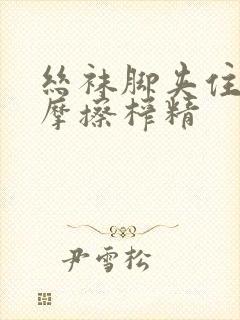 絲袜脚夹住
摩擦榨精
尹雪松